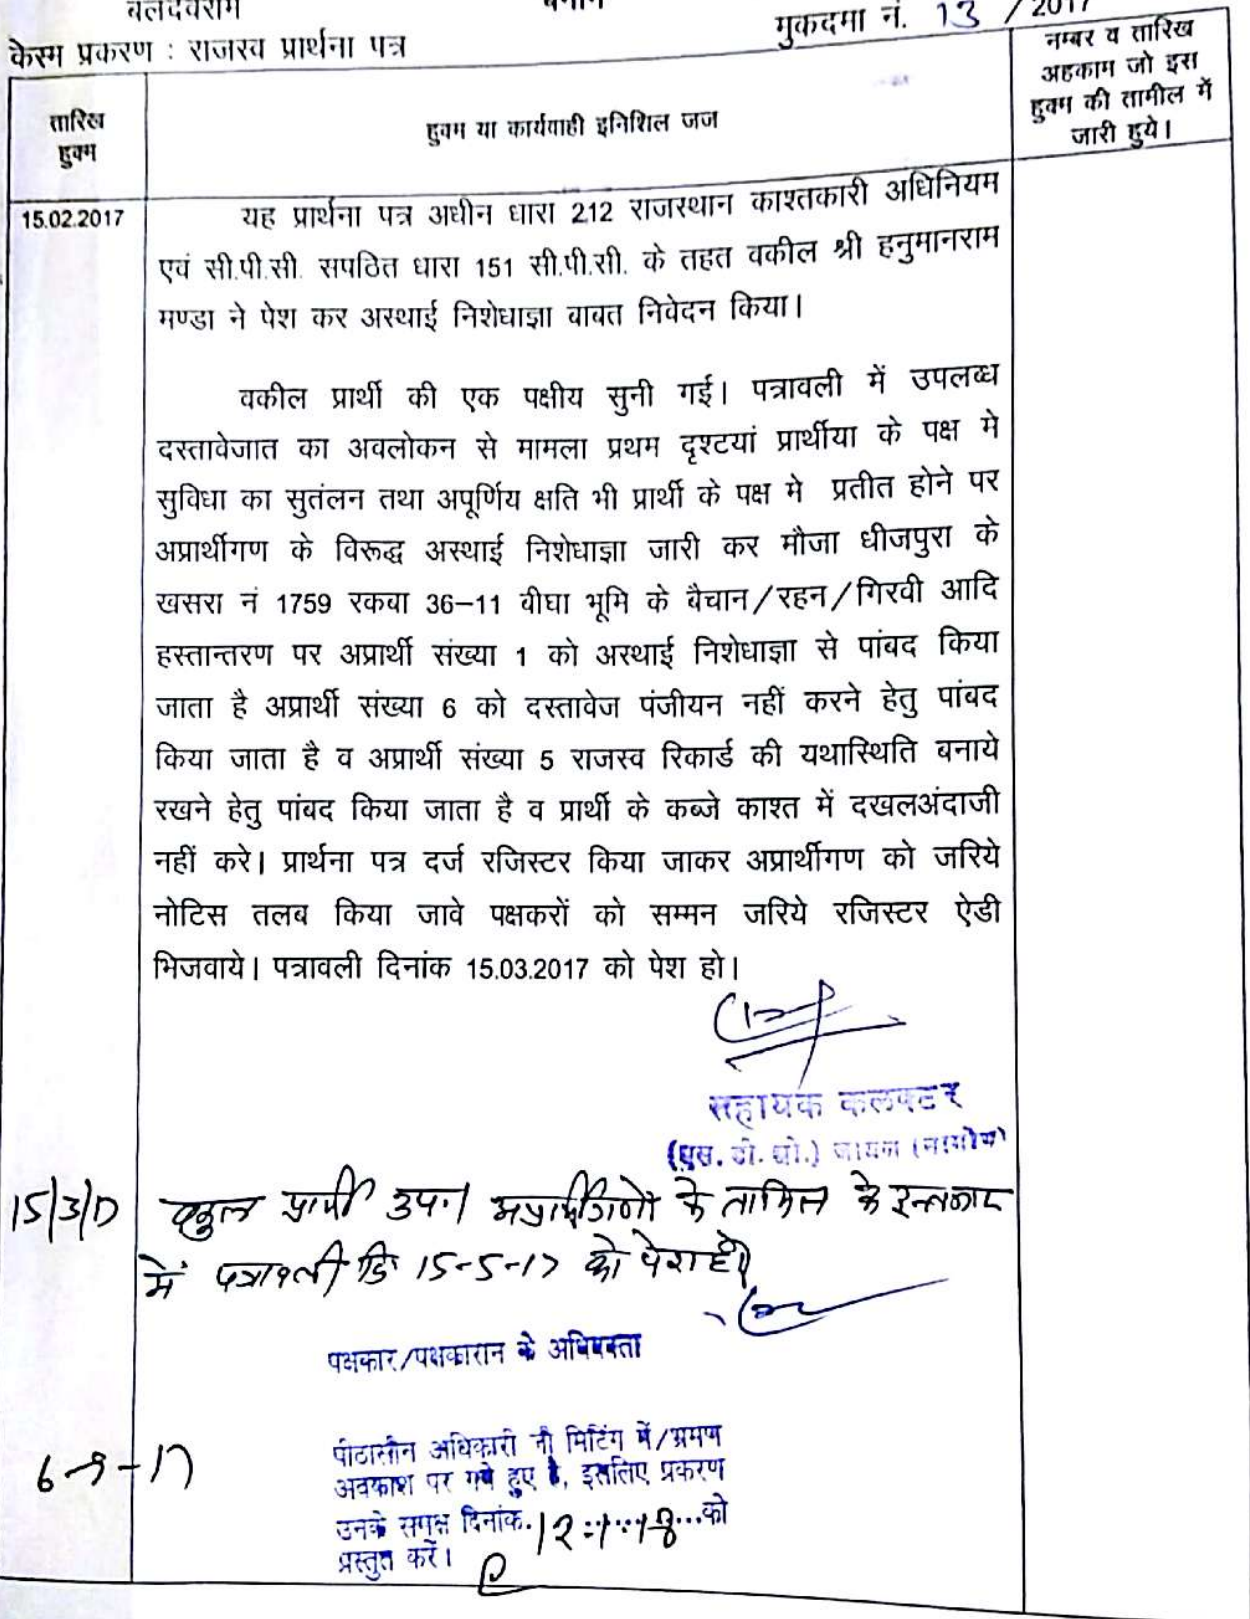 बलदेवराम बनाम
मुकदमा नं. 13 / 2017
केस्म प्रकरण : राजस्व प्रार्थना पत्र
तारिख
हुक्म
हुक्म या कार्यवाही इनिशिल जज
नम्बर व तारिख
अहकाम जो इस
हुक्म की तामील में
जारी हुये।
15.02.2017
यह प्रार्थना पत्र अधीन धारा 212 राजस्थान काश्तकारी अधिनियम
एवं सी.पी.सी. सपठित धारा 151 सी.पी.सी. के तहत वकील श्री हनुमानराम
मण्डा ने पेश कर अस्थाई निशेधाज्ञा बाबत निवेदन किया।
वकील प्रार्थी की एक पक्षीय सुनी गई। पत्रावली में उपलब्ध
दस्तावेजात का अवलोकन से मामला प्रथम दृश्टयां प्रार्थीया के पक्ष मे
सुविधा का सुतंलन तथा अपूर्णिय क्षति भी प्रार्थी के पक्ष मे प्रतीत होने पर
अप्रार्थीगण के विरूद्ध अस्थाई निशेधाज्ञा जारी कर मौजा धीजपुरा के
खसरा नं 1759 रकवा 36–11 बीघा भूमि के बैचान/रहन/गिरवी आदि
हस्तान्तरण पर अप्रार्थी संख्या 1 को अस्थाई निशेधाज्ञा से पांबद किया
जाता है अप्रार्थी संख्या 6 को दस्तावेज पंजीयन नहीं करने हेतु पांबद
किया जाता है व अप्रार्थी संख्या 5 राजस्व रिकार्ड की यथास्थिति बनाये
रखने हेतु पांबद किया जाता है व प्रार्थी के कब्जे काश्त में दखलअंदाजी
नहीं करे। प्रार्थना पत्र दर्ज रजिस्टर किया जाकर अप्रार्थीगण को जरिये
नोटिस तलब किया जावे पक्षकरों को सम्मन जरिये रजिस्टर ऐडी
भिजवाये। पत्रावली दिनांक 15.03.2017 को पेश हो।
सहायक कलक्टर
(एस. डी. ओ.) जायल (नागौर)
15/3/17 प्रार्थी उप. अप्रार्थीगणों के तामिल के इन्तजार
में पत्रावली दि 15-5-17 को पेश हो।
पक्षकार/पक्षकारान के अधिवक्ता
6-9-17
पीठासीन अधिकारी मिटिंग में/भ्रमण
अवकाश पर गये हुए है, इसलिए प्रकरण
उनके समक्ष दिनांक. 12.1.18 ...को
प्रस्तुत करें।